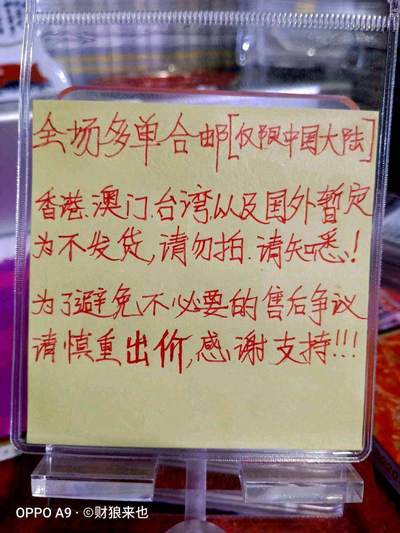 全场多单合邮[仅限中国大陆]
香港.澳门.台湾以及国外暂定
为不发货,请勿拍.请知悉!
为了避免不必要的售后争议
请慎重出价,感谢支持!!!
OPPO A9 · ©财狼来也